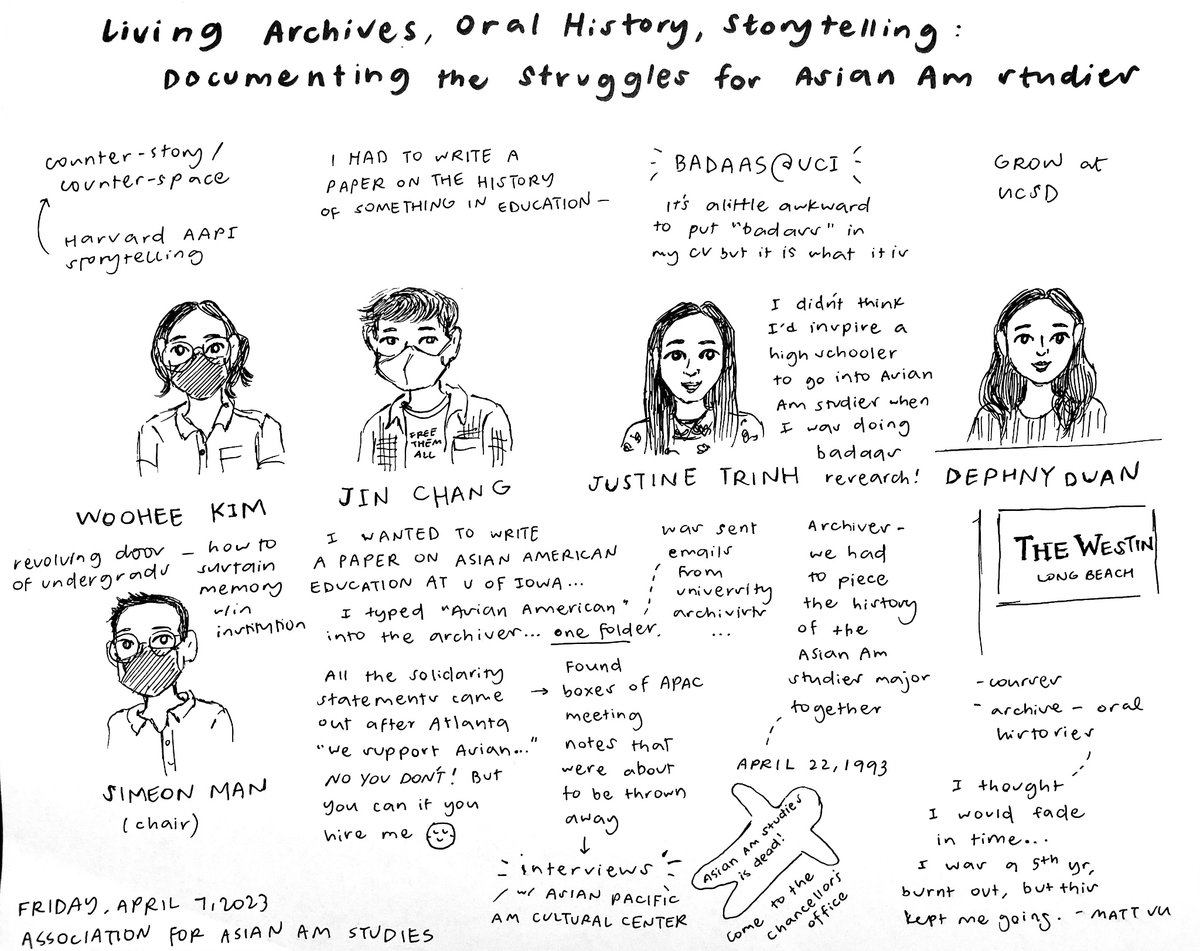 Living Archives, Oral History, Storytelling:
Documenting the Struggles for Asian Am studies
counter-story/
counter-space
Harvard AAPI
storytelling
WOOHEE KIM
revolving door
of undergrads
– how to
sustain
memory
w/in
institution
SIMEON MAN
(chair)
I HAD TO WRITE A
PAPER ON THE HISTORY
OF SOMETHING IN EDUCATION –
FREE
THEM
ALL
JIN CHANG
I WANTED TO WRITE
A PAPER ON ASIAN AMERICAN
EDUCATION AT U OF IOWA...
I typed "Asian American"
into the archives... one folder.
was sent
emails
from
university
archivists
...
All the solidarity
statements came
out after Atlanta
"we support Asian..."
NO YOU DON'T! But
you can if you
hire me
→ Found
boxes of APAC
meeting
notes that
were about
to be thrown
away
↓
interviews
w/ ASIAN PACIFIC
AM CULTURAL CENTER
BADAAS@UCI
It's alittle awkward
to put "badass" in
my CV but it is what it is
I didn't think
I'd inspire a
high schooler
to go into Asian
Am studies when
I was doing
badaas
research!
JUSTINE TRINH
Archives –
we had
to piece
the history
of the
Asian Am
studies major
together
APRIL 22, 1993
Asian Am studies
is dead!
come to the
chancellor's
office
GROW at
UCSD
DEPHNY DUAN
THE WESTIN
LONG BEACH
- courses
- archive – oral
histories
I thought
I would fade
in time...
I was a 5th yr,
burnt out, but this
kept me going. – MATT VU
FRIDAY, APRIL 7, 2023
ASSOCIATION FOR ASIAN AM STUDIES